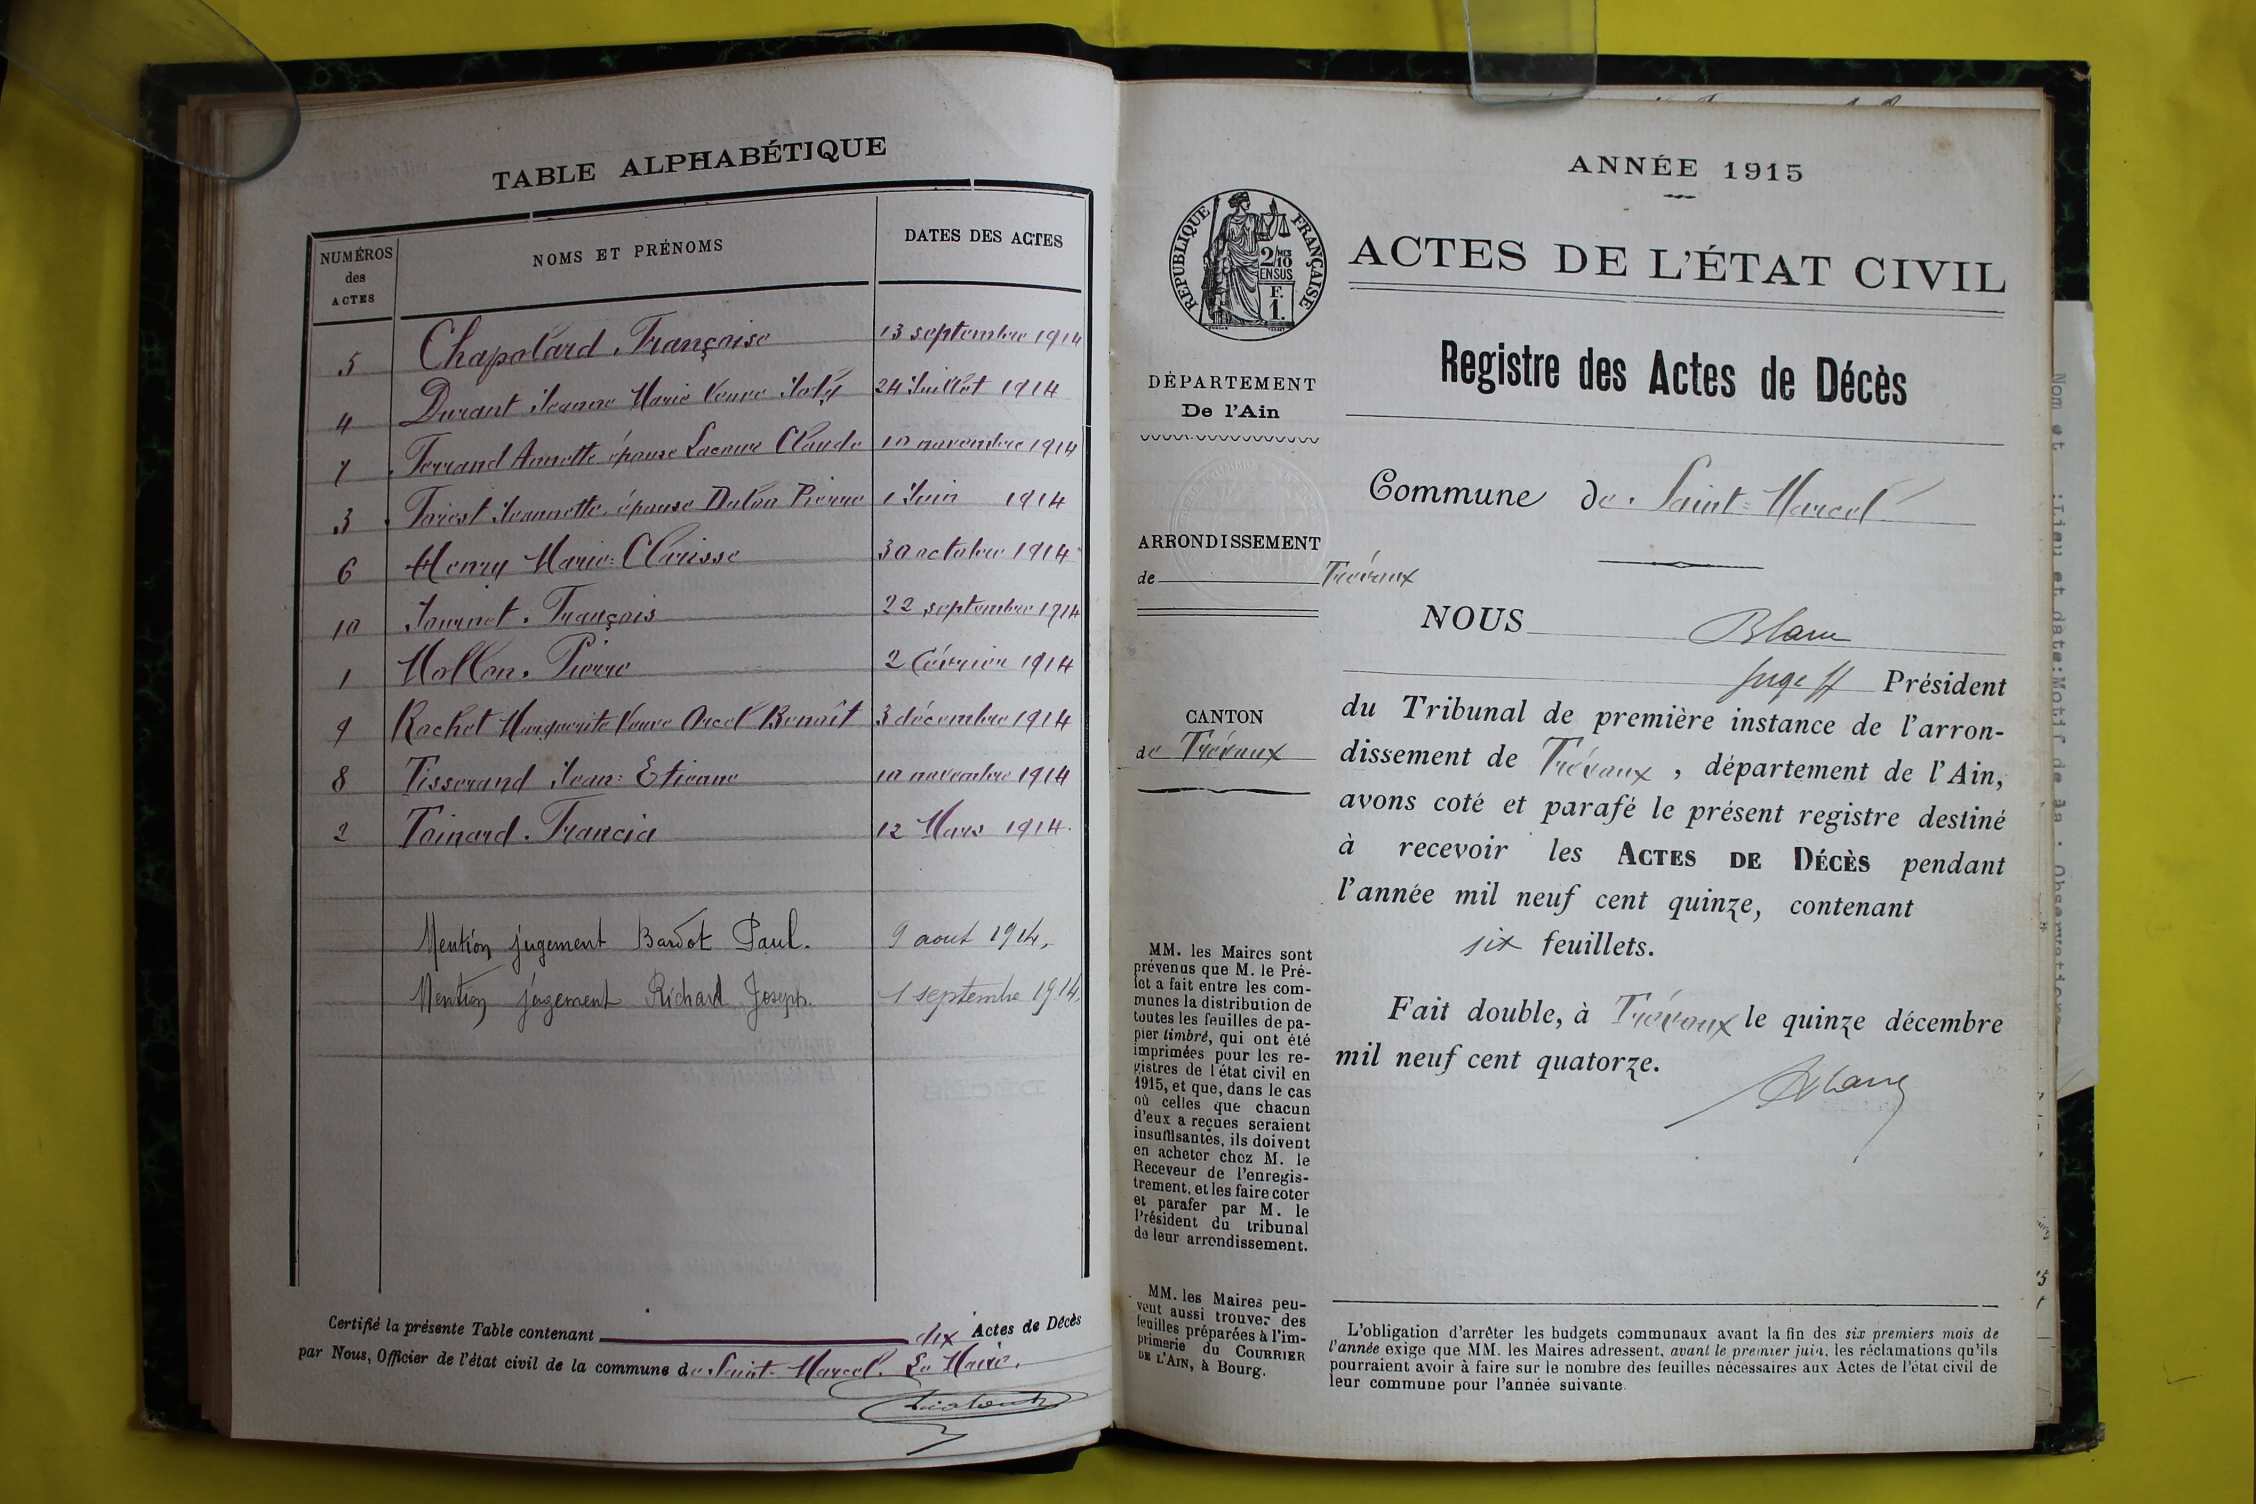 TABLE ALPHABÉTIQUE
NUMÉROS des ACTES
NOMS ET PRÉNOMS
DATES DES ACTES
5 Chapolard Françoise 13 septembre 1914
4 Durant Jeanne Marie Veuve Joly 24 Juillet 1914
7 Ferrand Annette épouse Lacour Claude 10 novembre 1914
3 Forest Jeannette épouse Pierre 1 Juin 1914
6 Henry Marie=Clarisse 30 octobre 1914
10 Journet François 22 septembre 1914
1 Mollon Pierre 2 février 1914
9 Rachet Marguerite Veuve Orcel Benoît 3 décembre 1914
8 Tisserand Jean=Etienne 10 novembre 1914
2 Toinard Francia 12 Mars 1914
Mention jugement Bardot Paul. 9 aout 1914.
Mention jugement Richard Joseph. 1 septembre 1914.
Certifié la présente Table contenant dix Actes de Décès
par Nous, Officier de l'état civil de la commune de Saint-Marcel. Le Maire.
ANNÉE 1915
RÉPUBLIQUE FRANÇAISE
2/10
EN SUS
F.
1.
ACTES DE L'ÉTAT CIVIL
Registre des Actes de Décès
DÉPARTEMENT
De l'Ain
Commune de Saint=Marcel
ARRONDISSEMENT
de Trévoux
CANTON
de Trévoux
NOUS Blanc
Juge ff Président
du Tribunal de première instance de l'arron-
dissement de Trévoux, département de l'Ain,
avons coté et parafé le présent registre destiné
à recevoir les ACTES DE DÉCÈS pendant
l'année mil neuf cent quinze, contenant
six feuillets.
Fait double, à Trévoux le quinze décembre
mil neuf cent quatorze.
Blanc
MM. les Maires sont
prévenus que M. le Pré-
fet a fait entre les com-
munes la distribution de
toutes les feuilles de pa-
pier timbré, qui ont été
imprimées pour les re-
gistres de l'état civil en
1915, et que, dans le cas
où celles que chacun
d'eux a reçues seraient
insuffisantes, ils doivent
en acheter chez M. le
Receveur de l'enregis-
trement, et les faire coter
et parafer par M. le
Président du tribunal
de leur arrondissement.
MM. les Maires peu-
vent aussi trouver des
feuilles préparées à l'im-
primerie du COURRIER
DE L'AIN, à Bourg.
L'obligation d'arrêter les budgets communaux avant la fin des six premiers mois de
l'année exige que MM. les Maires adressent, avant le premier juin, les réclamations qu'ils
pourraient avoir à faire sur le nombre des feuilles nécessaires aux Actes de l'état civil de
leur commune pour l'année suivante.